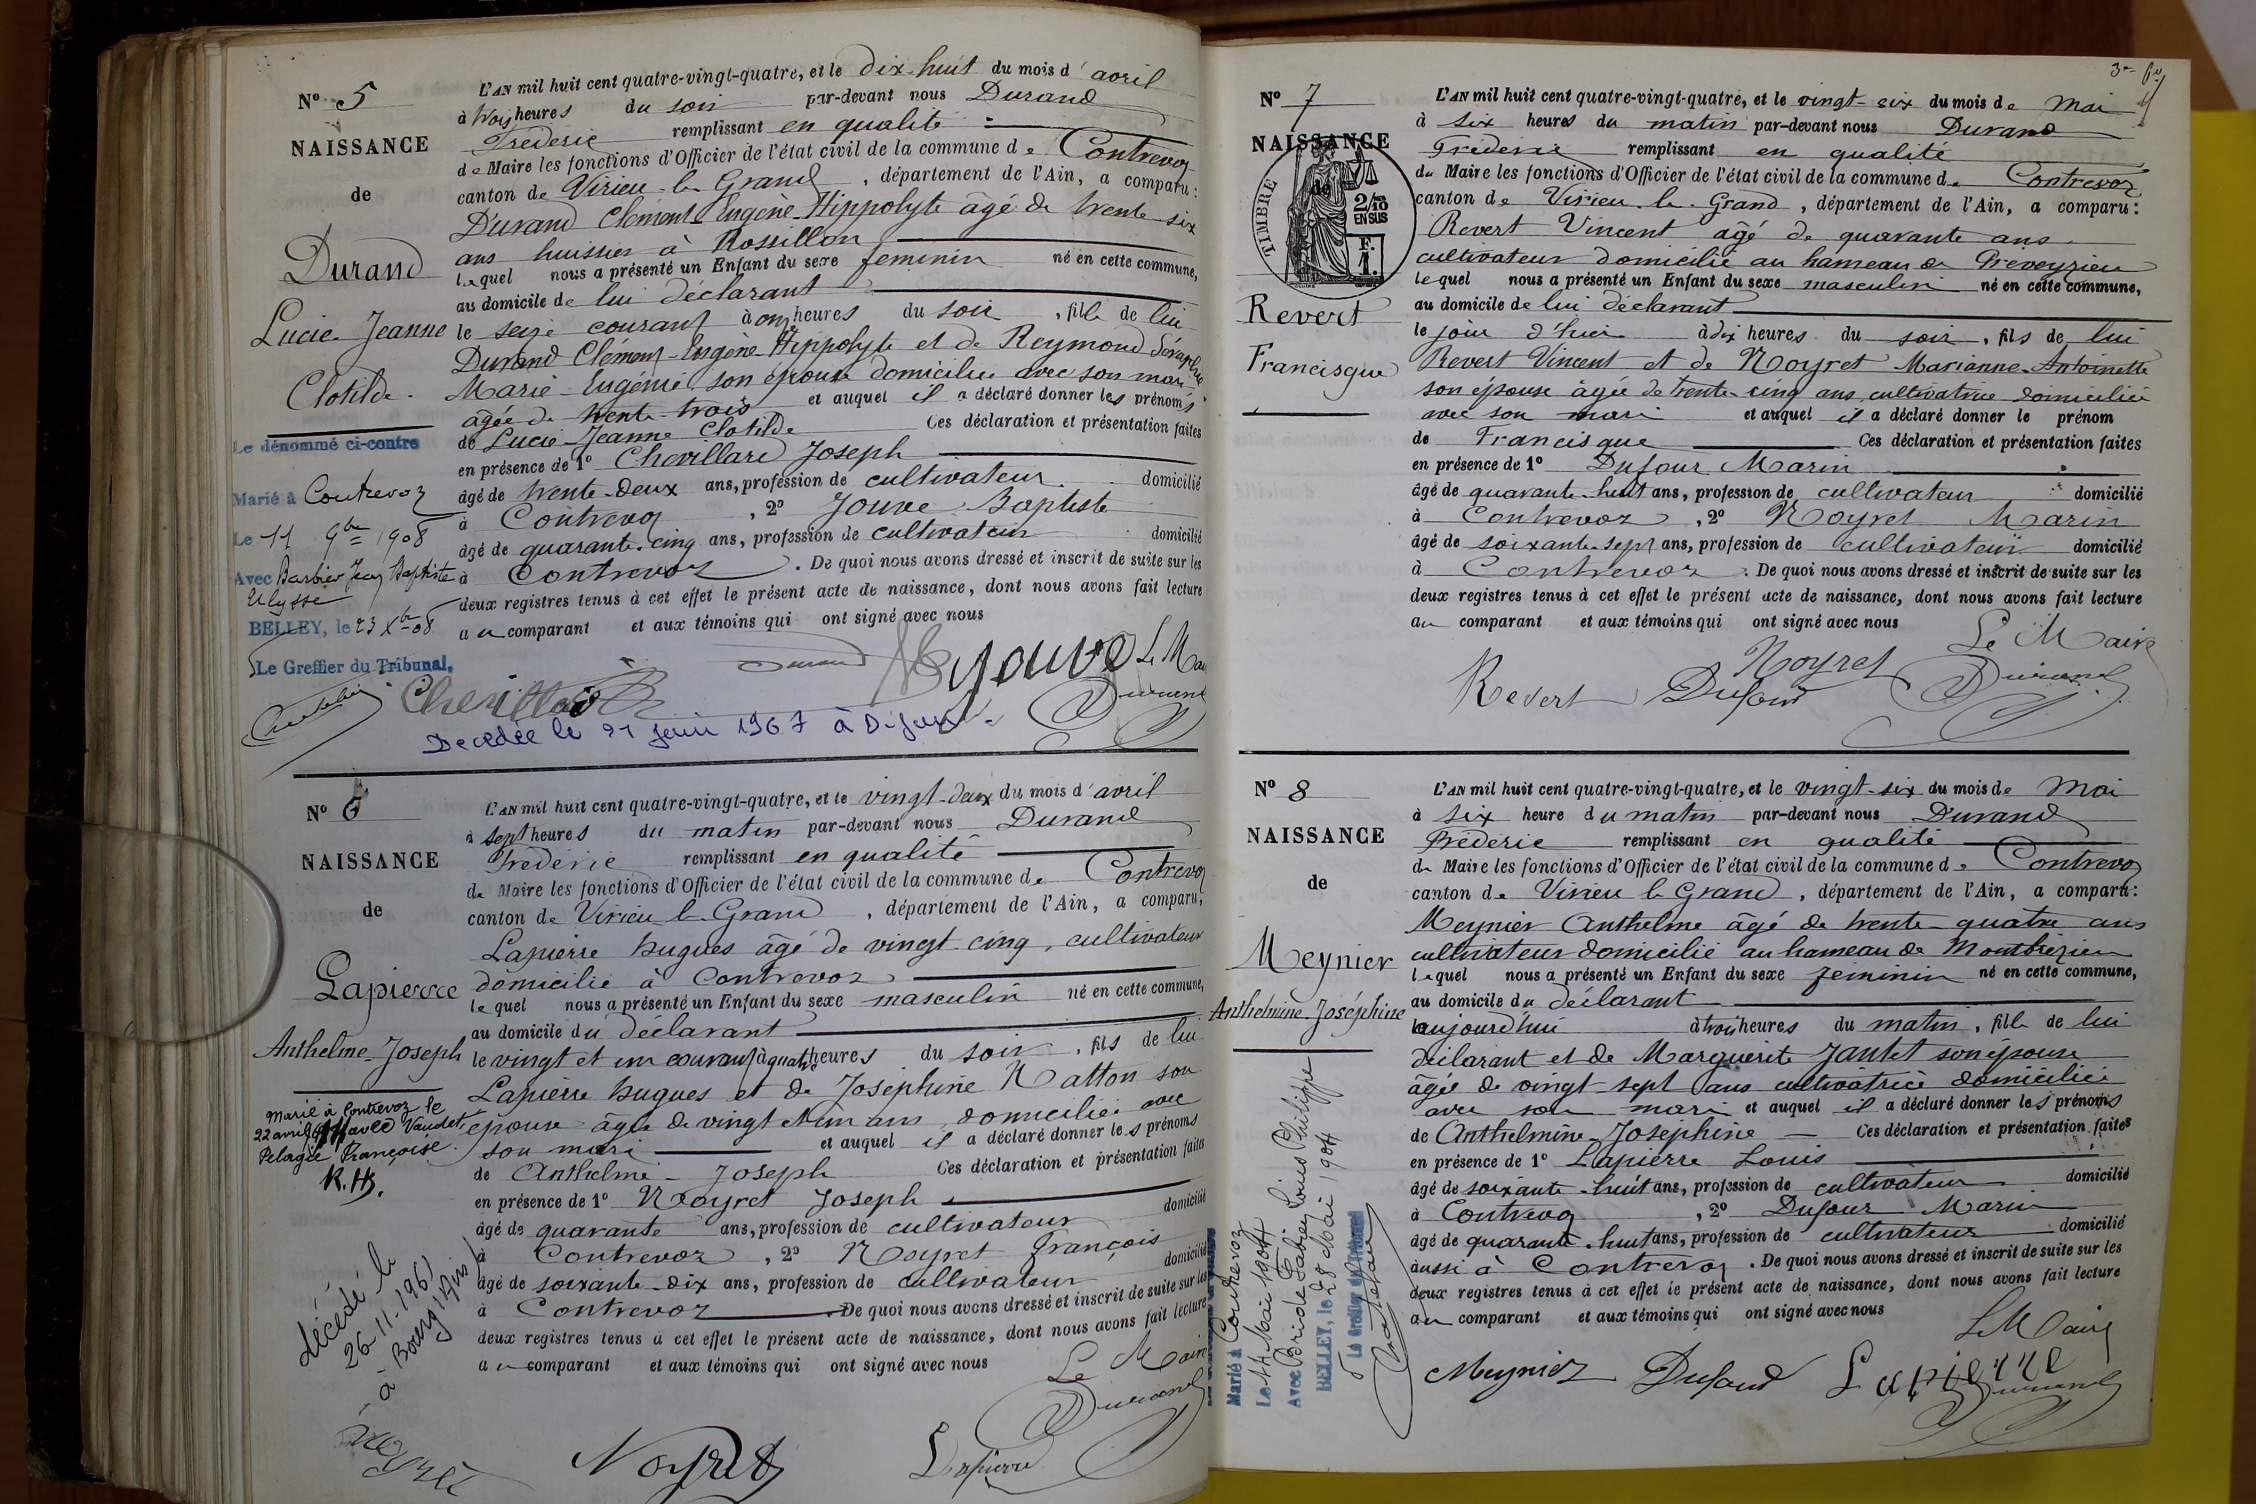 N° 5
NAISSANCE
de
Durand
Lucie Jeanne
Clotilde.
Le dénommé ci-contre
Marié à Contrevoz
Le 11 9bre 1908
Avec Barbier Jean Baptiste
Ulysse
BELLEY, le 23 Xbre 08
Le Greffier du Tribunal,
L'AN mil huit cent quatre-vingt-quatre, et le dix-huit du mois d'avril
à trois heures du soir par-devant nous Durand
Fréderic remplissant en qualité
de Maire les fonctions d'Officier de l'état civil de la commune de Contrevoz
canton de Virieu-le-Grand, département de l'Ain, a comparu:
Durand Clément-Eugène-Hippolyte âgé de trente-six
ans huissier à Rossillon
lequel nous a présenté un Enfant du sexe feminin né en cette commune,
au domicile de lui déclarant
le seize courant à onze heures du soir, fille de lui
Durand Clément-Eugène Hippolyte et de Reymond Séraphie
Marie-Eugénie son épouse domiciliée avec son mari
agée de trente-trois et auquel il a déclaré donner les prénoms
de Lucie-Jeanne Clotilde Ces déclaration et présentation faites
en présence de 1° Chevillard Joseph
âgé de trente-deux ans, profession de cultivateur domicilié
à Contrevoz, 2° Jouve Baptiste
âgé de quarante-cinq ans, profession de cultivateur domicilié
à Contrevoz. De quoi nous avons dressé et inscrit de suite sur les
deux registres tenus à cet effet le présent acte de naissance, dont nous avons fait lecture
au comparant et aux témoins qui ont signé avec nous
Durand Jouve Le Mai
Chevillard Durand
Decedée le 21 juin 1967 à Dijon.
N° 6
NAISSANCE
de
Lapierre
Anthelme-Joseph
Marié à Contrevoz le
22 avril avec Vaudet
Pelagie Françoise.
R.H.
décédé le
26-11-1961
à Bourg (Ain)
L'AN mil huit cent quatre-vingt-quatre, et le vingt-deux du mois d'avril
à sept heures du matin par-devant nous Durand
Fréderic remplissant en qualité
de Maire les fonctions d'Officier de l'état civil de la commune de Contrevoz
canton de Virieu le Grand, département de l'Ain, a comparu,
Lapierre Hugues âgé de vingt-cinq, cultivateur
domicilié à Contrevoz
lequel nous a présenté un Enfant du sexe masculin né en cette commune,
au domicile du déclarant
le vingt et un courant à quatre heures du soir, fils de lui
Lapierre Hugues et de Joséphine Natton son
épouse âgée de vingt et un ans domiciliée avec
son mari et auquel il a déclaré donner les prénoms
de Anthelme-Joseph Ces déclaration et présentation faites
en présence de 1° Noyret Joseph
âgé de quarante ans, profession de cultivateur domicilié
à Contrevoz, 2° Noyret François
âgé de soixante-dix ans, profession de cultivateur domicilié
à Contrevoz De quoi nous avons dressé et inscrit de suite sur les
deux registres tenus à cet effet le présent acte de naissance, dont nous avons fait lecture
au comparant et aux témoins qui ont signé avec nous
Le Maire
Durand
Noyret Noyret Lapierre
3e
N° 7
NAISSANCE
de
TIMBRE
2/10
EN SUS
F.
1.
Revert
Francisque
L'AN mil huit cent quatre-vingt-quatre, et le vingt-six du mois de Mai
à six heures du matin par-devant nous Durand
Fréderic remplissant en qualité
de Maire les fonctions d'Officier de l'état civil de la commune de Contrevoz
canton de Virieu-le-Grand, département de l'Ain, a comparu:
Revert Vincent agé de quarante ans
cultivateur domicilié au hameau de Preveyzieu
lequel nous a présenté un Enfant du sexe masculin né en cette commune,
au domicile de lui déclarant
le jour d'hier à dix heures du soir, fils de lui
Revert Vincent et de Noyret Marianne-Antoinette
son épouse âgée de trente-cinq ans cultivatrice domiciliée
avec son mari et auquel il a déclaré donner le prénom
de Francisque Ces déclaration et présentation faites
en présence de 1° Dufour Marin
âgé de quarante-huit ans, profession de cultivateur domicilié
à Contrevoz, 2° Noyret Marin
âgé de soixante-sept ans, profession de cultivateur domicilié
à Contrevoz. De quoi nous avons dressé et inscrit de suite sur les
deux registres tenus à cet effet le présent acte de naissance, dont nous avons fait lecture
au comparant et aux témoins qui ont signé avec nous
Le Maire
Revert Dufour Noyret Durand
N° 8
NAISSANCE
de
Meynier
Anthelmine-Joséphine
Marié à Contrevoz
Le 14 Mai 1904
Avec Bride Fabien Louis Philippe
BELLEY, le 28 Mai 1904
Le Greffier du Tribunal
L'AN mil huit cent quatre-vingt-quatre, et le vingt-six du mois de Mai
à six heure du matin par-devant nous Durand
Fréderic remplissant en qualité
de Maire les fonctions d'Officier de l'état civil de la commune de Contrevoz
canton de Virieu le Grand, département de l'Ain, a comparu:
Meynier Anthelme âgé de trente-quatre ans
cultivateur domicilié au hameau de Montbrezieu
lequel nous a présenté un Enfant du sexe feminin né en cette commune,
au domicile du déclarant
aujourd'hui à trois heures du matin, fille de lui
déclarant et de Marguerite Jantet son épouse
âgée de vingt-sept ans cultivatrice domiciliée
avec son mari et auquel il a déclaré donner les prénoms
de Anthelmine-Joséphine Ces déclaration et présentation faites
en présence de 1° Lapierre Louis
âgé de soixante-huit ans, profession de cultivateur domicilié
à Contrevoz, 2° Dufour Marin
âgé de quarante-huit ans, profession de cultivateur domicilié
aussi à Contrevoz. De quoi nous avons dressé et inscrit de suite sur les
deux registres tenus à cet effet le présent acte de naissance, dont nous avons fait lecture
au comparant et aux témoins qui ont signé avec nous
Le Maire
Meynier Dufour Lapierre Durand